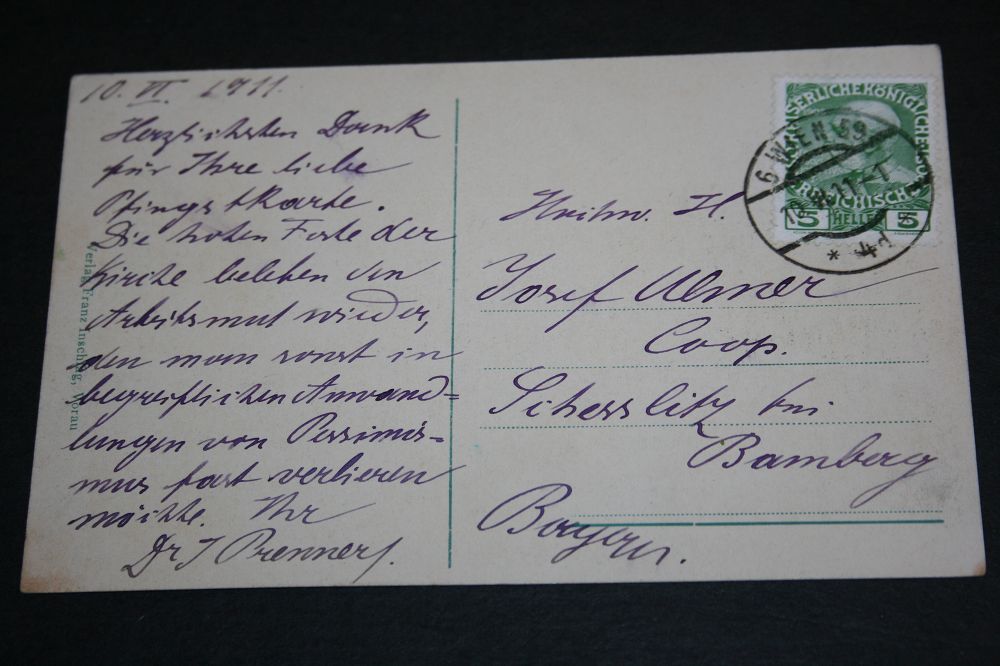 10. VI. 1911.
Herzlichsten Dank
für Ihre liebe
Pfingstkarte.
Die hohen Feste der
Kirche beleben den
Arbeitsmut wieder,
den man sonst in
begreiflichen Anwand=
lungen von Pessimis=
mus fast verlieren
möchte. Ihr
Dr J Prenner
Verlag Franz Inschlag, Vorau
KAISERLICHE KÖNIGLICHE
ÖSTERREICHISCHE
5 HELLER 5
6 WIEN 59
* 4d *
Hochw. H.
Josef Ulmer
Coop.
Schesslitz bei
Bamberg
Bayern.